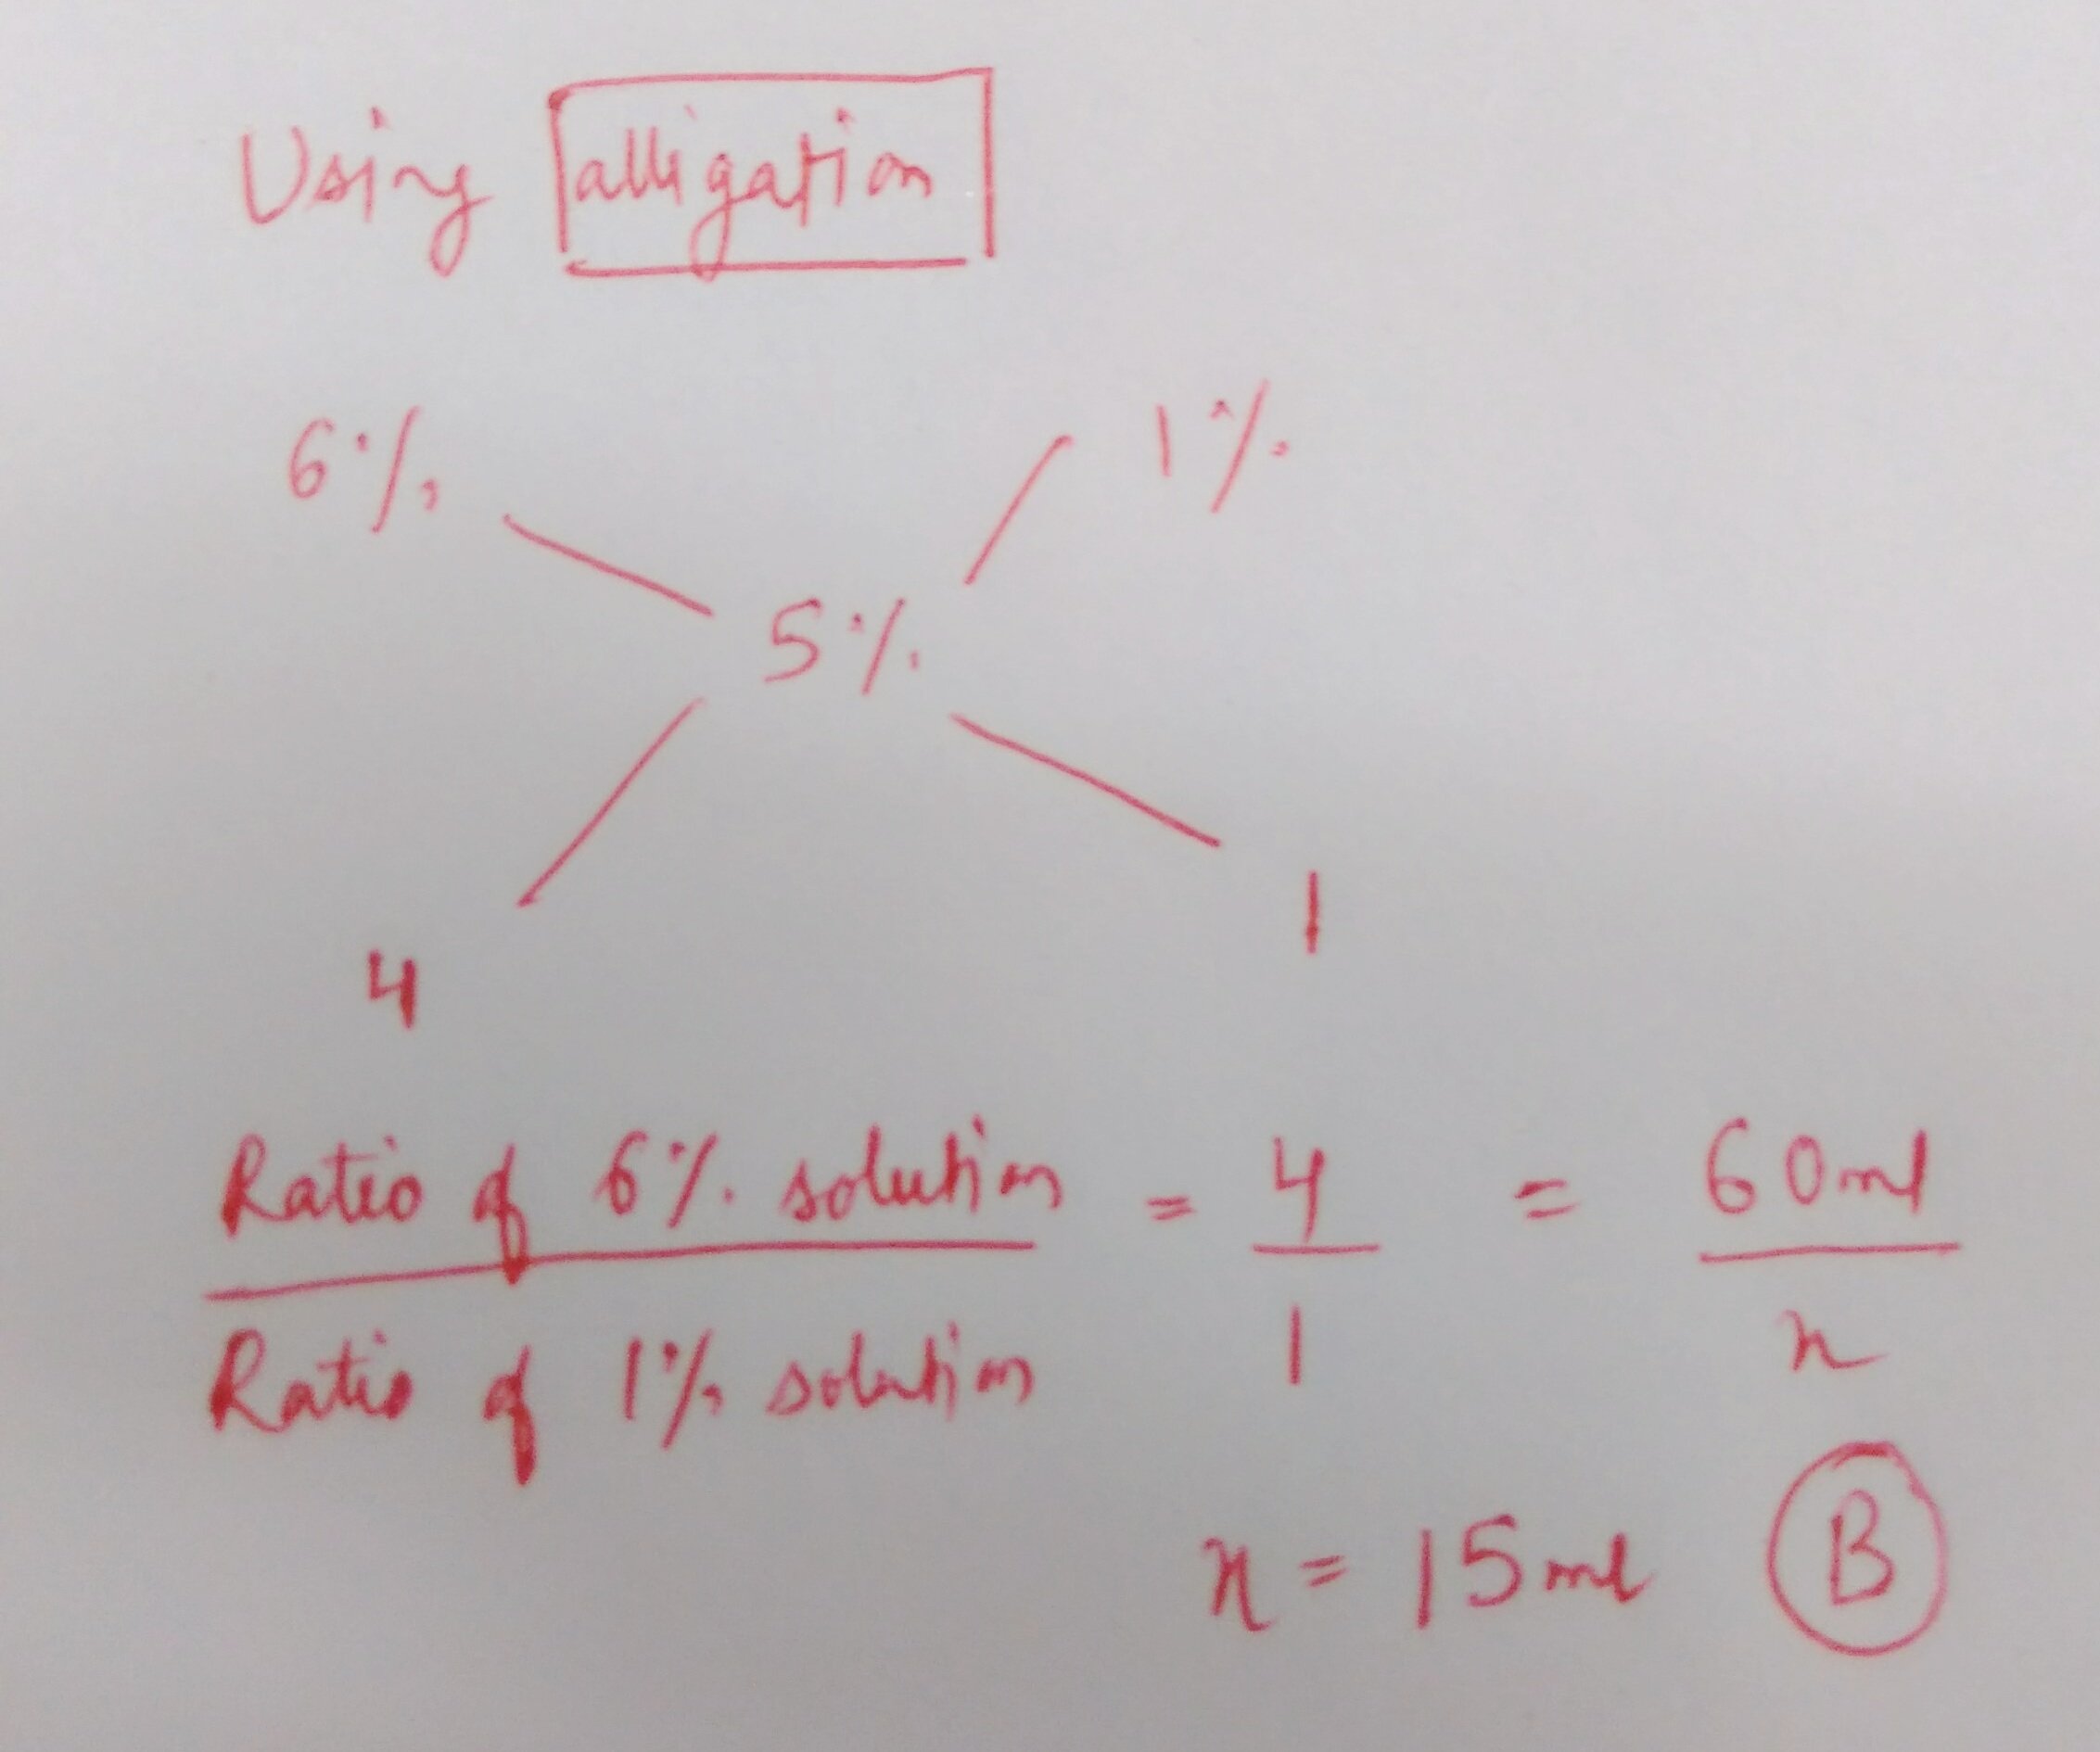 Using alligation
6% 1%
5%
4 1
Ratio of 6% solution = 4 = 60ml
Ratio of 1% solution 1 x
x = 15ml B